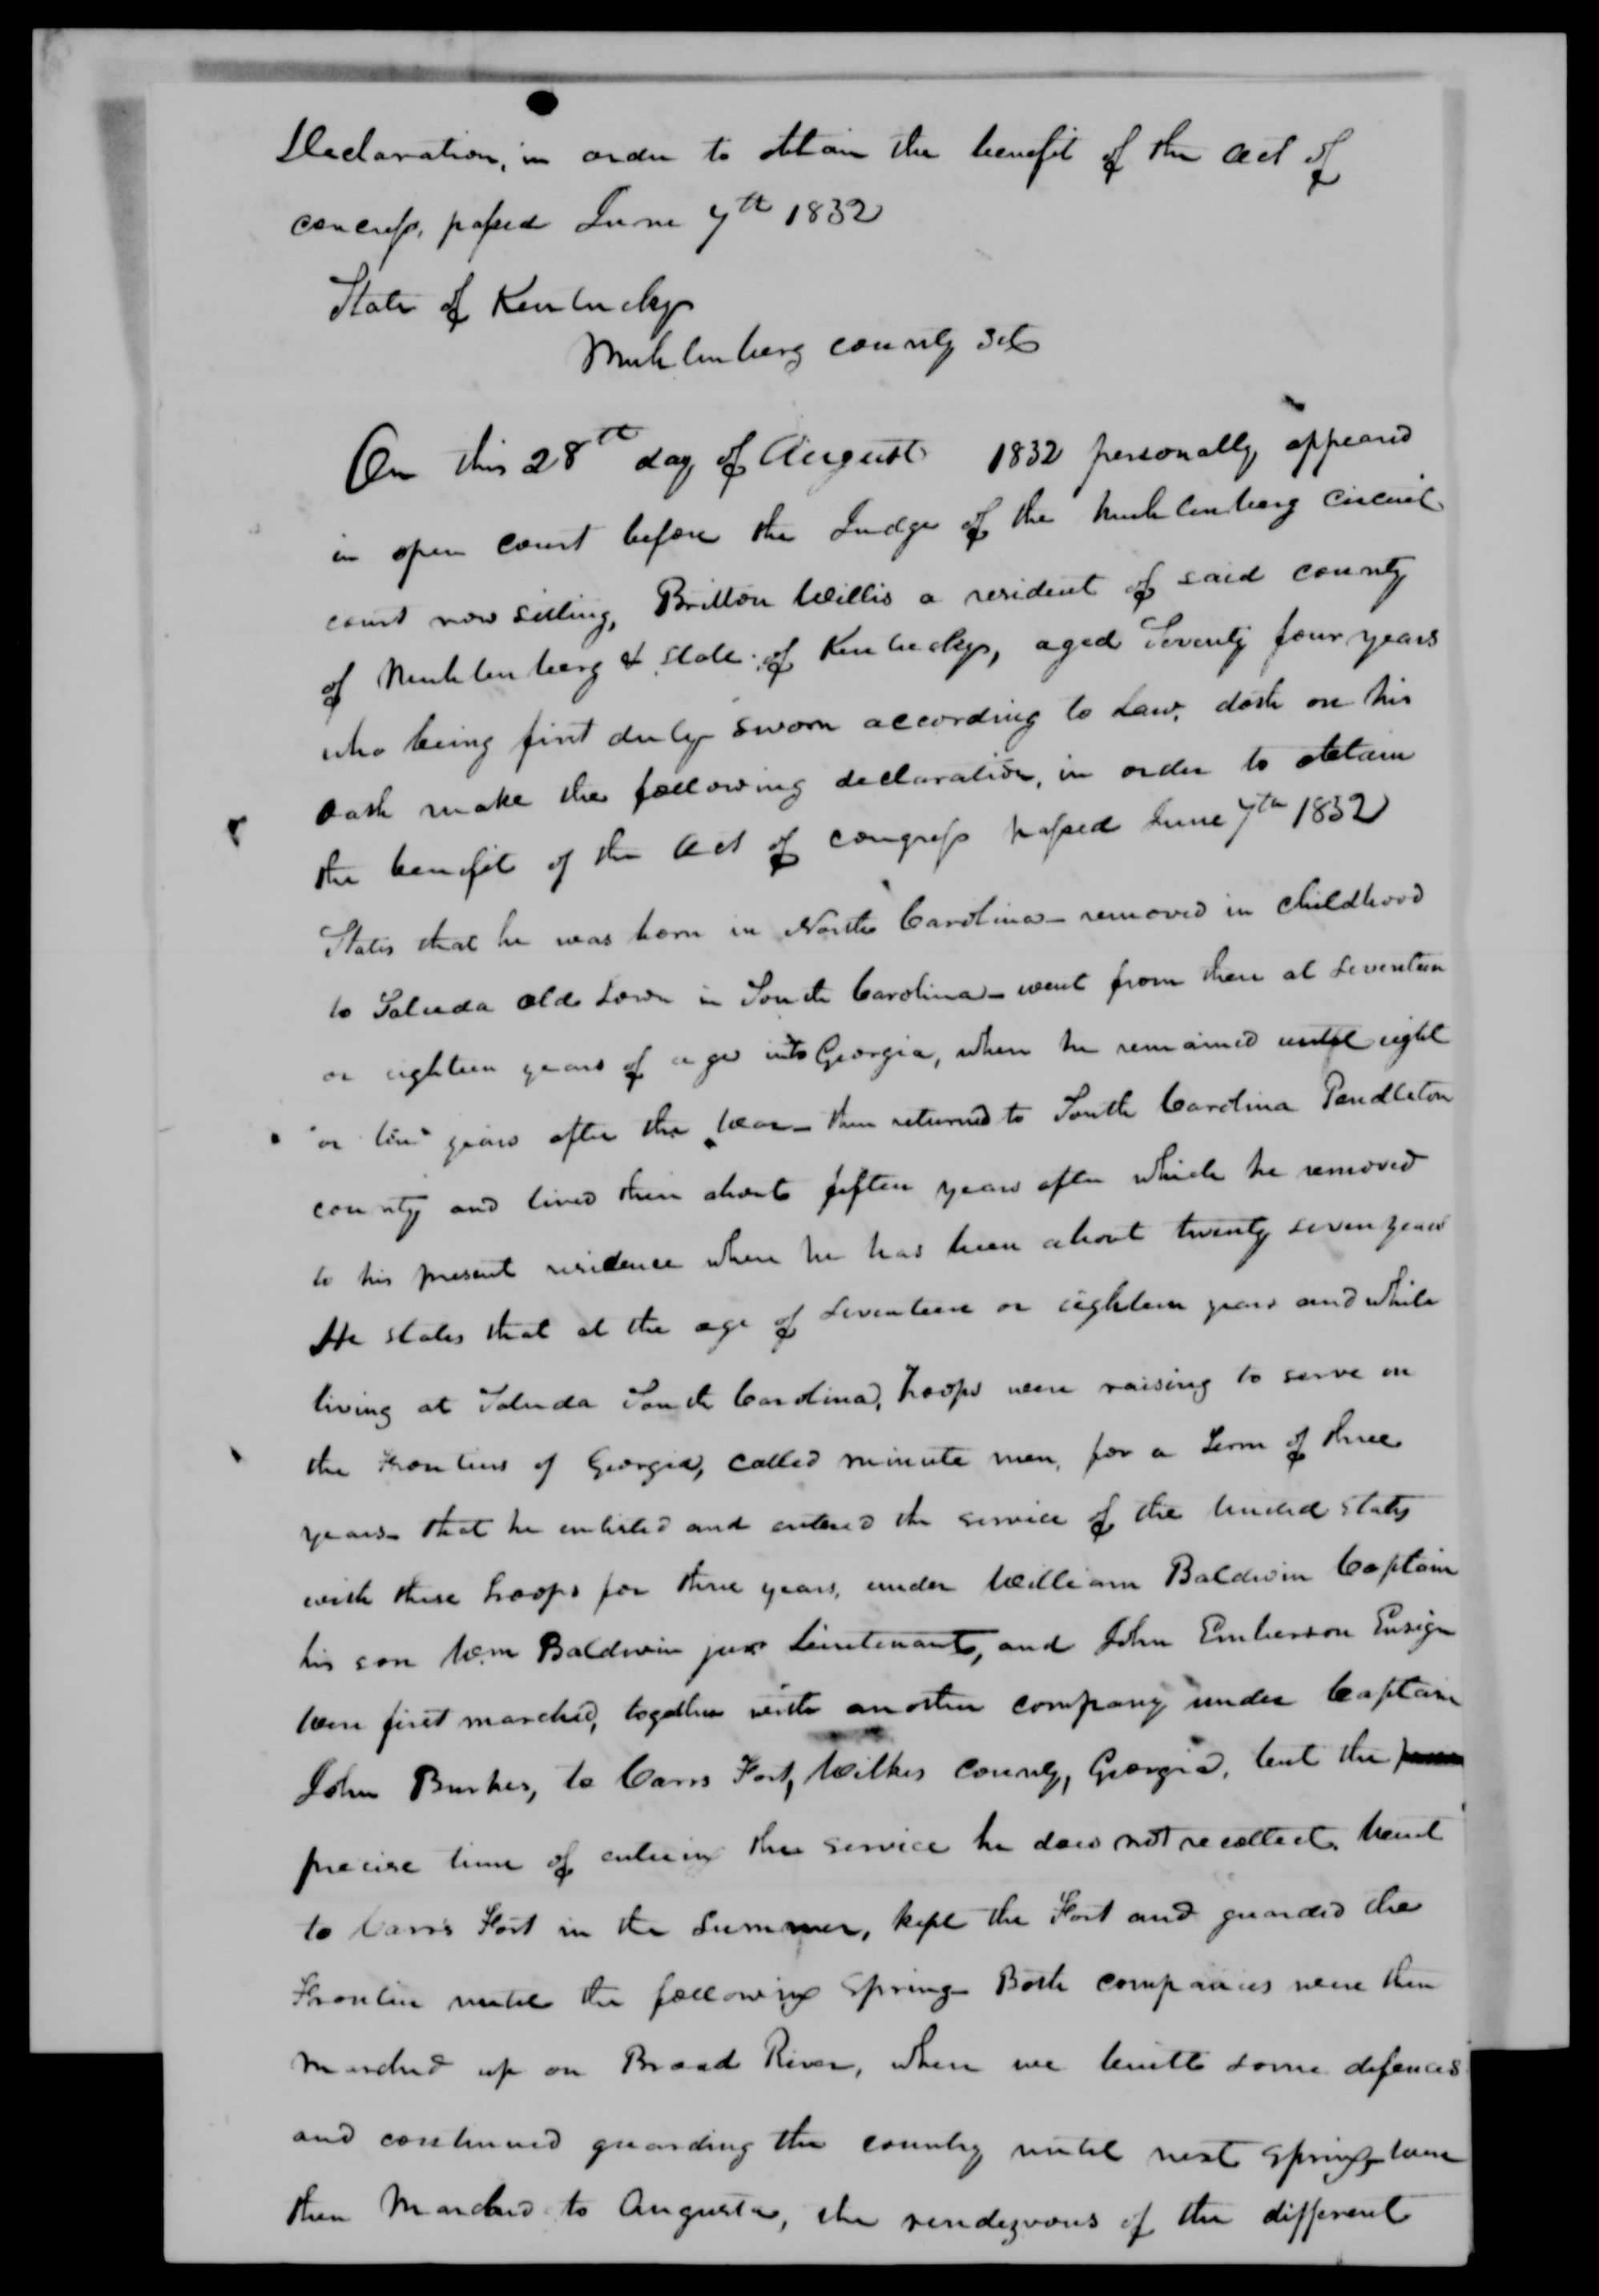 Declaration, in order to obtain the benefit of the act of
concress, passed June 7th 1832
State of Kentucky
Muhlenberg county Sct
On this 28th day of August 1832 personally appeared
in open court before the Judge of the Muhlenberg Circuit
court now sitting, Britton Willis a resident of said county
of Muhlenberg & state of Kentucky, aged Seventy four years
who being first duly sworn according to Law, doth on his
oath make the following declaration, in order to obtain
the benefit of the act of congress passed June 7th 1832
States that he was born in North Carolina – removed in childhood
to Saluda old Town in South Carolina – went from there at seventeen
or eighteen years of age into Georgia, where he remained until eight
or ten years after the war – then returned to South Carolina Pendleton
county and lived there about fifteen years after which he removed
to his present residence where he has been about twenty seven years
He states that at the age of seventeen or eighteen years and while
living at Saluda South Carolina, Troops were raising to serve on
the Frontiers of Georgia, called minute men, for a Term of three
years – that he enlisted and entered the service of the United States
with these troops for three years, under William Baldwin Captain
his son Wm Baldwin junr Lieutenant, and John Emberson Ensign
Were first marched, together with another company under Captain
John Burkes, to Carrs Fort, Wilkes county, Georgia, but the
precise time of entering the service he does not recollect. Went
to Carrs Fort in the Summer, kept the Fort and guarded the
Frontier until the following Spring – Both companies were then
marched up on Broad River, where we built some defences
and continued guarding the country until next Spring – were
then Marched to Augusta, the rendezvous of the different